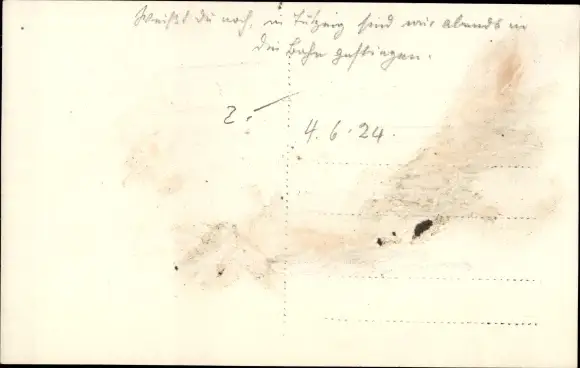 Weißt du noch, in Tutzing sind wir abends in
die Bahn gestiegen.
2.-
4.6.24.